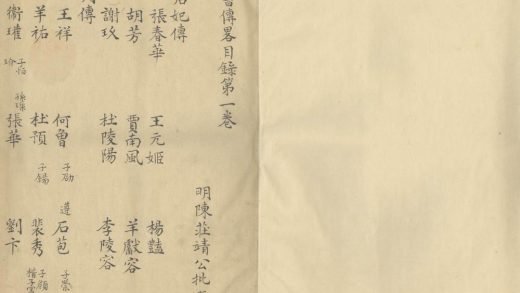 傳畧目錄第一卷
明陳莊靖公批
后妃傳
張春華 王元姬 楊豔
胡芳 賈南風 羊獻容
謝玖 杜陵陽 李陵容
傳
王祥 何曾 子劭 遵 石苞 子崇
羊祜 杜預 子錫 裴秀 子頠 楷子憲
衞瓘 子恒 玠 張華 劉卞